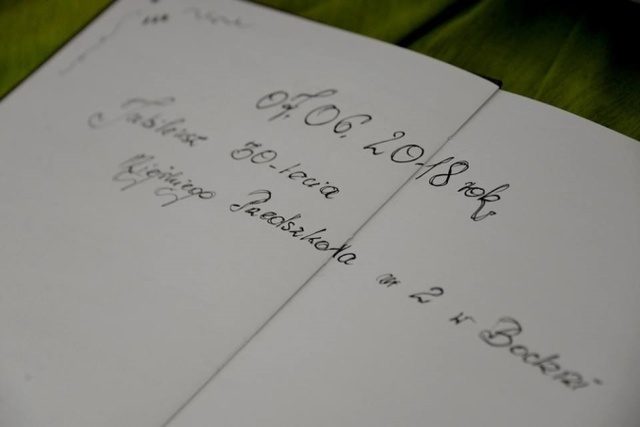 07.06.2018 rok
Jubileusz 30-lecia
Miejskiego Przedszkola nr 2 w